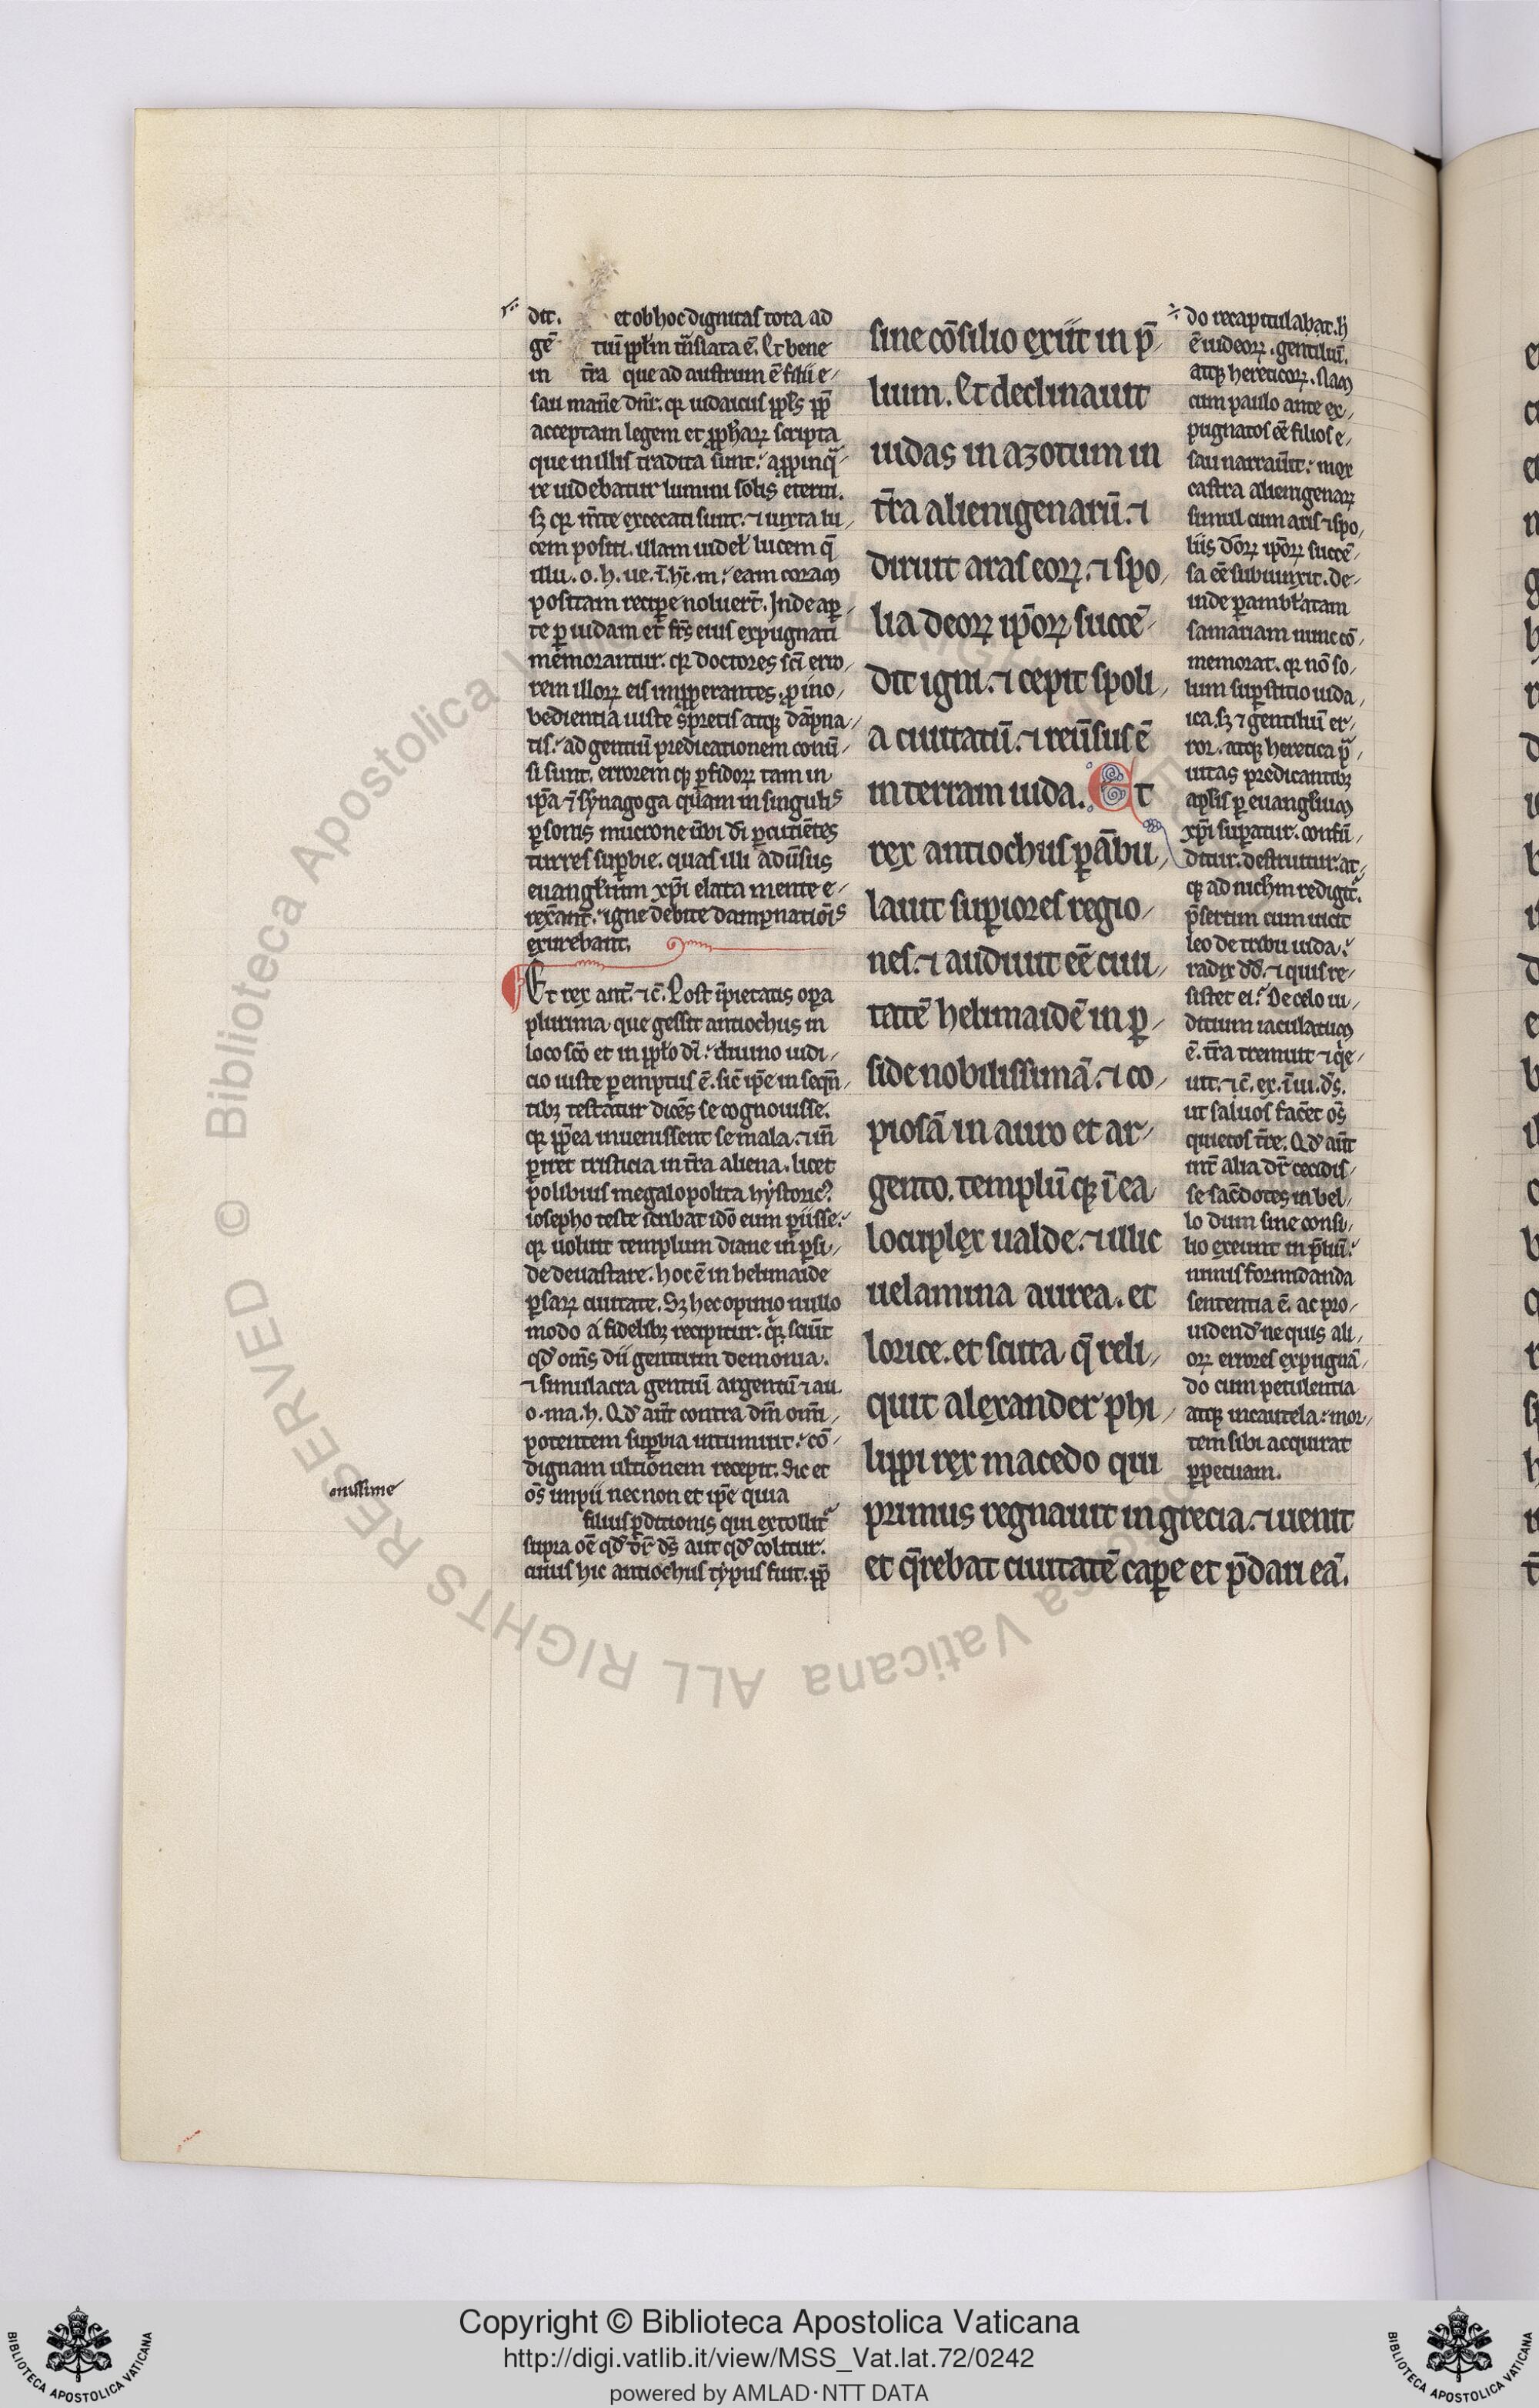 dit. et ob hoc dignitas tota ad
gē tiū pplm̄ tñslata ē. Et bene
in t̄ra que ad austrum ē filii e-
sau mane dn̄r. qr iudaicus ppls pp̄
acceptam legem et pphaꝝ scripta
que in illis tradita sunt. appinq̄-
re uidebatur lumini solis eterni.
sꝫ qr m̄te excecati sunt. ⁊ iuxta lu-
cem positi. illam uidel̄ lucem q̄
illu. o. h. ue. ī. hc̄. m. eam coram
positam recipe noluert̄. Inde ap-
te ꝑ iudam et fr̄s eius expugnati
memorantur. qr doctores sc̄i erro-
rem illoꝝ eis impperantes. ꝓ ino-
bedientia iuste spretis atqꝫ dāpna-
tis. ad gentiū predicationem conū-
si sunt. errorem qꝫ ꝑfidoꝝ tam in
ip̄a synagoga quam in singulis
ꝑsonis mucrone ūbi dī ꝑcutiētes
turres suꝑbie. quas illi adūsus
euanglium xp̄i elata mente e-
rexant̄. igne debite dampnatiōis
exurebant.
Et rex ant̄. ⁊c̄. Post īpietatis oꝑa
plurima que gessit antiochus in
loco sc̄o et in pplo dī. diuino iudi-
cio iuste ꝑemptus ē. sic̄ ip̄e in seqn̄-
tibꝫ testatur dicēs se cognouisse.
qr pp̄ea inuenissent se mala. ⁊ in
ꝑiret tristicia in t̄ra aliena. licet
polibius megalopolita hystoric᷒
iosepho teste scribat idō eum ꝑiisse.
qr uoluit templum diane in ꝑsi-
de deuastare. hoc ē in helimaide
ꝑsaꝝ ciuitate. Sꝫ hec opinio nullo
modo a fidelibꝫ recipitur. qr sciūt
qd̄ om̄s dii gentium demonia.
⁊ simulacra gentiū argentū ⁊ au.
o. ma. h. Qd̄ aūt contra dm̄ om̄i-
potentem suꝑbia intumuit. cō-
dignam ultionem recepit. Sic et
om̄s impii necnon et ip̄e quia
filius ꝑditionis qui extollit̄
supra om̄e qd̄ dr̄ ds̄ aut qd̄ colitur.
cuius hic antiochus typus fuit. pp̄
onissime
sine cōsilio exiit in p̄-
lium. Et declinauit
iudas in azotum in
t̄ra alienigenarū. ⁊
diruit aras eoꝝ. ⁊ spo-
lia deoꝝ ip̄oꝝ succē-
dit igni. ⁊ cepit spoli-
a ciuitatū. ⁊ reūsus ē
in terram iuda. Et
rex antiochus ꝑābu-
lauit suꝑiores regio-
nes. ⁊ audiuit ee̅ ciui-
tatē helimaidē in ꝑ-
side nobilissimā. ⁊ co-
piosā in auro et ar-
gento. templū qꝫ ī ea
locuplex ualde. ⁊ illic
uelamina aurea. et
lorice. et scuta q̄ reli-
quit alexander phi-
lippi rex macedo qui
primus regnauit in grecia. ⁊ uenit
et q̄rebat ciuitatē caꝑe et p̄dari eā.
do recapitulabat. h̄
ē iudeoꝝ. gentiliū.
atqꝫ hereticoꝝ. Nam
cum paulo ante ex-
pugnatos ee̅ filios e-
sau narrauit. mox
castra alienigenaꝝ
simul cum aris ⁊ spo-
liis deoꝝ ip̄oꝝ succē-
sa ee̅ subiunxit. de-
inde ꝑambl̄atam
samariam nunc cō-
memorat. qr nō so-
lum suꝑstitio iuda-
ica. sꝫ ⁊ gentiliū er-
ror. atqꝫ heretica p̄-
uitas predicantibꝫ
aplis ꝑ euanglium
xp̄i suꝑatur. confū-
ditur. destruitur. at-
qꝫ ad nichm̄ redigit̄.
p̄sertim cum uicit
leo de tribu iuda.
radix dd̄. ⁊ quis re-
sistet ei. De celo iu-
dicium iaculatum
ē. t̄ra tremuit ⁊ q̄e-
uit. ⁊c̄. ex. ī iu. ds̄.
ut saluos facet̄ os̄
quietos t̄re. Qd̄ aūt
int̄ alia dr̄ cecidis-
se sac̄dotes in bel-
lo dum sine consi-
lio exeunt in p̄liū.
nimis formidanda
sententia ē. ac pro-
uidend̄ ne quis ali-
oꝝ errores expugnā-
do cum petulentia
atqꝫ incautela. mor-
tem sibi acquirat
ꝑpetuam.
© Biblioteca Apostolica Vaticana ALL RIGHTS RESERVED
Copyright © Biblioteca Apostolica Vaticana
http://digi.vatlib.it/view/MSS_Vat.lat.72/0242
powered by AMLAD·NTT DATA
BIBLIOTECA APOSTOLICA VATICANA
BIBLIOTECA APOSTOLICA VATICANA